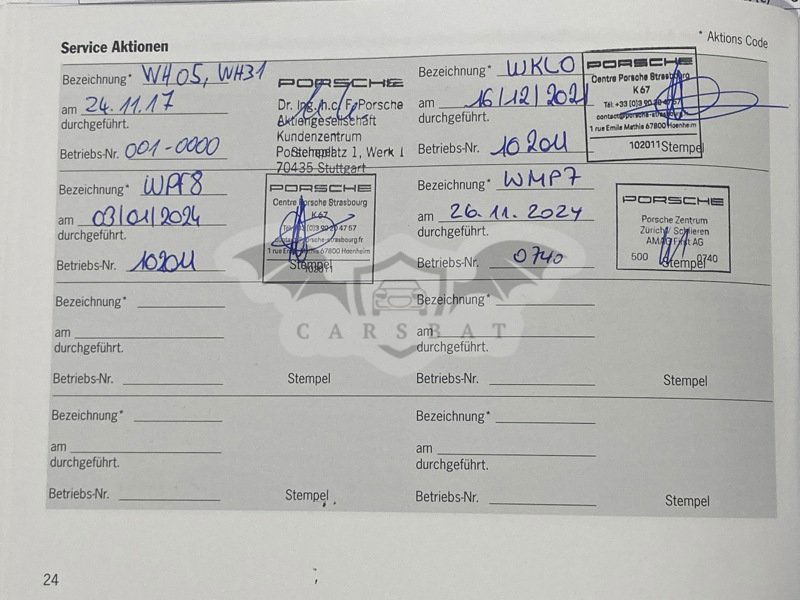 * Aktions Code
Service Aktionen
Bezeichnung* WH05, WH31
am 24.11.17
durchgeführt.
Betriebs-Nr. 001-0000
PORSCHE
Dr. Ing. h.c. F. Porsche
Aktiengesellschaft
Kundenzentrum
Porscheplatz 1, Werk 1
70435 Stuttgart
Stempel
Bezeichnung* WKL0
am 16/12/2021
durchgeführt.
Betriebs-Nr. 102011
PORSCHE
Centre Porsche Strasbourg
K67
Tél: +33 (0)3 90 20 47 57
1 rue Emile Mathis 67800 Hoenheim
102011 Stempel
Bezeichnung* WPF8
am 03/01/2024
durchgeführt.
Betriebs-Nr. 102011
PORSCHE
Centre Porsche Strasbourg
K67
1 rue Emile Mathis 67800 Hoenheim
Stempel
102011
Bezeichnung* WMP7
am 26.11.2024
durchgeführt.
Betriebs-Nr. 0740
PORSCHE
Porsche Zentrum
Zürich/ Schlieren
AMAG First AG
500 0740
Stempel
CARSBAT
Bezeichnung*
am
durchgeführt.
Betriebs-Nr. Stempel
Bezeichnung*
am
durchgeführt.
Betriebs-Nr. Stempel
Bezeichnung*
am
durchgeführt.
Betriebs-Nr. Stempel
Bezeichnung*
am
durchgeführt.
Betriebs-Nr. Stempel
24